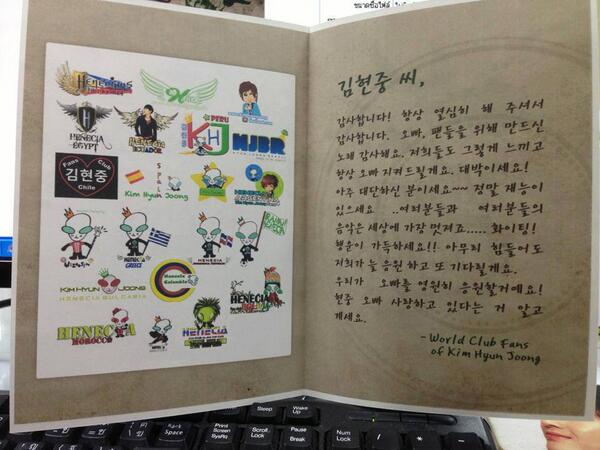 ขนาดชื่อไฟล์
HENECIANS
HENECIA
EGYPT
HENECIA
ECUADOR
PERU
KHJ
HJBR
Fans Club
김현중
Chile
SPAIN
Kim Hyun Joong
GREECE
HENECIA
KIM HYUN JOONG
HENECIA BULGARIA
Henecia
Colombia
HENECIA
HENECIA
MOROCCO
HENECIA
김현중 씨,
감사합니다! 항상 열심히 해 주셔서
감사합니다. 오빠, 팬들을 위해 만드신
노래 감사해요. 저희들도 그렇게 느끼고
항상 오빠 지켜드릴게요. 대박이세요!
아주 대단하신 분이세요~~ 정말 재능이
있으세요 ..여러분들과 여러분들의
음악은 세상에 가장 멋져죠..... 화이팅!
행운이 가득하세요!! 아무리 힘들어도
저희가 늘 응원 하고 또 기다릴게요.
우리가 오빠를 영원히 응원할거예요!
현중 오빠 사랑하고 있다는 거 알고
계세요.
-World Club Fans
of Kim Hyun Joong
Sleep
Wake Up
Back Space
Print Screen
SysRq
Scroll Lock
Pause
Break
Num Lock
/
*
-